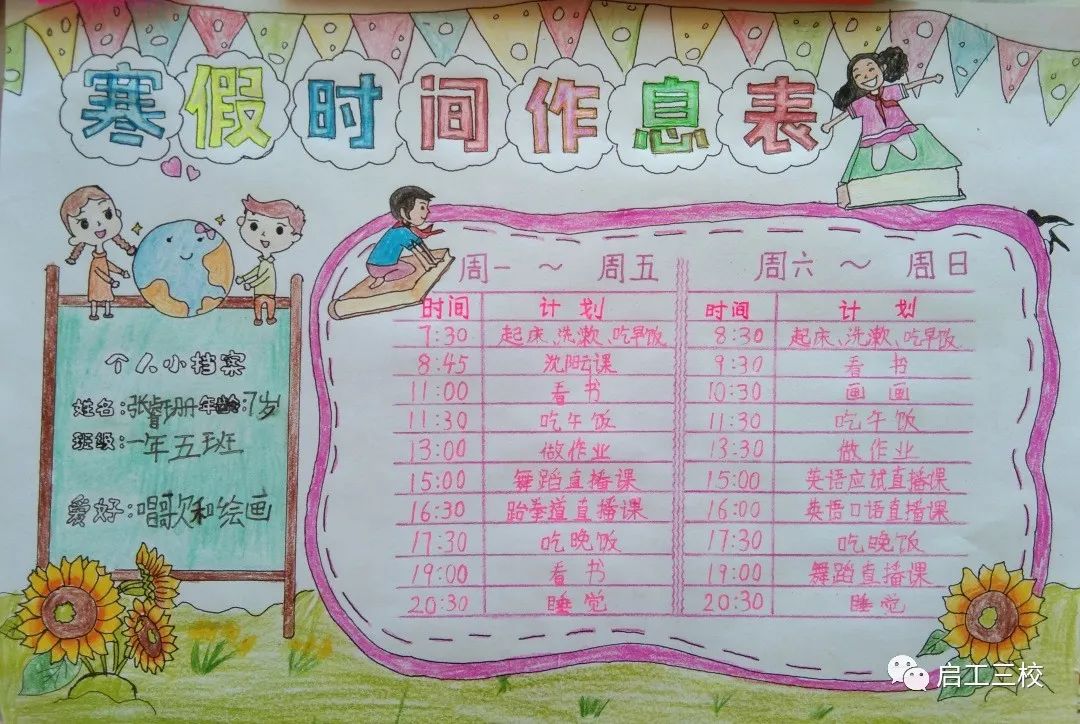 寒假时间作息表
个人小档案
姓名:张睿珊 年龄:7岁
班级:一年五班
爱好:唱歌和绘画
周一 ~ 周五
周六 ~ 周日
时间 计划 时间 计划
7:30 起床、洗漱、吃早饭 8:30 起床、洗漱、吃早饭
8:45 沈阳云课 9:30 看书
11:00 看书 10:30 画画
11:30 吃午饭 11:30 吃午饭
13:00 做作业 13:30 做作业
15:00 舞蹈直播课 15:00 英语应试直播课
16:30 跆拳道直播课 16:00 英语口语直播课
17:30 吃晚饭 17:30 吃晚饭
19:00 看书 19:00 舞蹈直播课
20:30 睡觉 20:30 睡觉
启工三校